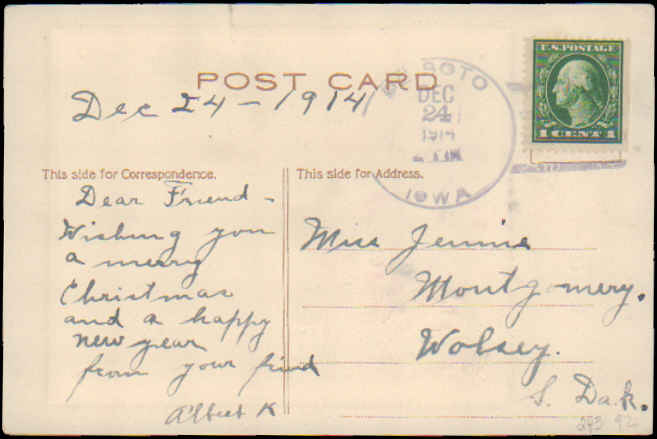 POST CARD
Dec 24-1914
DEC
24
1914
IOWA
U.S. POSTAGE
1 CENT 1
This side for Correspondence.
This side for Address.
Dear Friend -
Wishing you
a merry
Christmas
and a happy
new year
from your frind
Albert K
Miss Jennie
Montgomery.
Wolsey.
S. Dak.